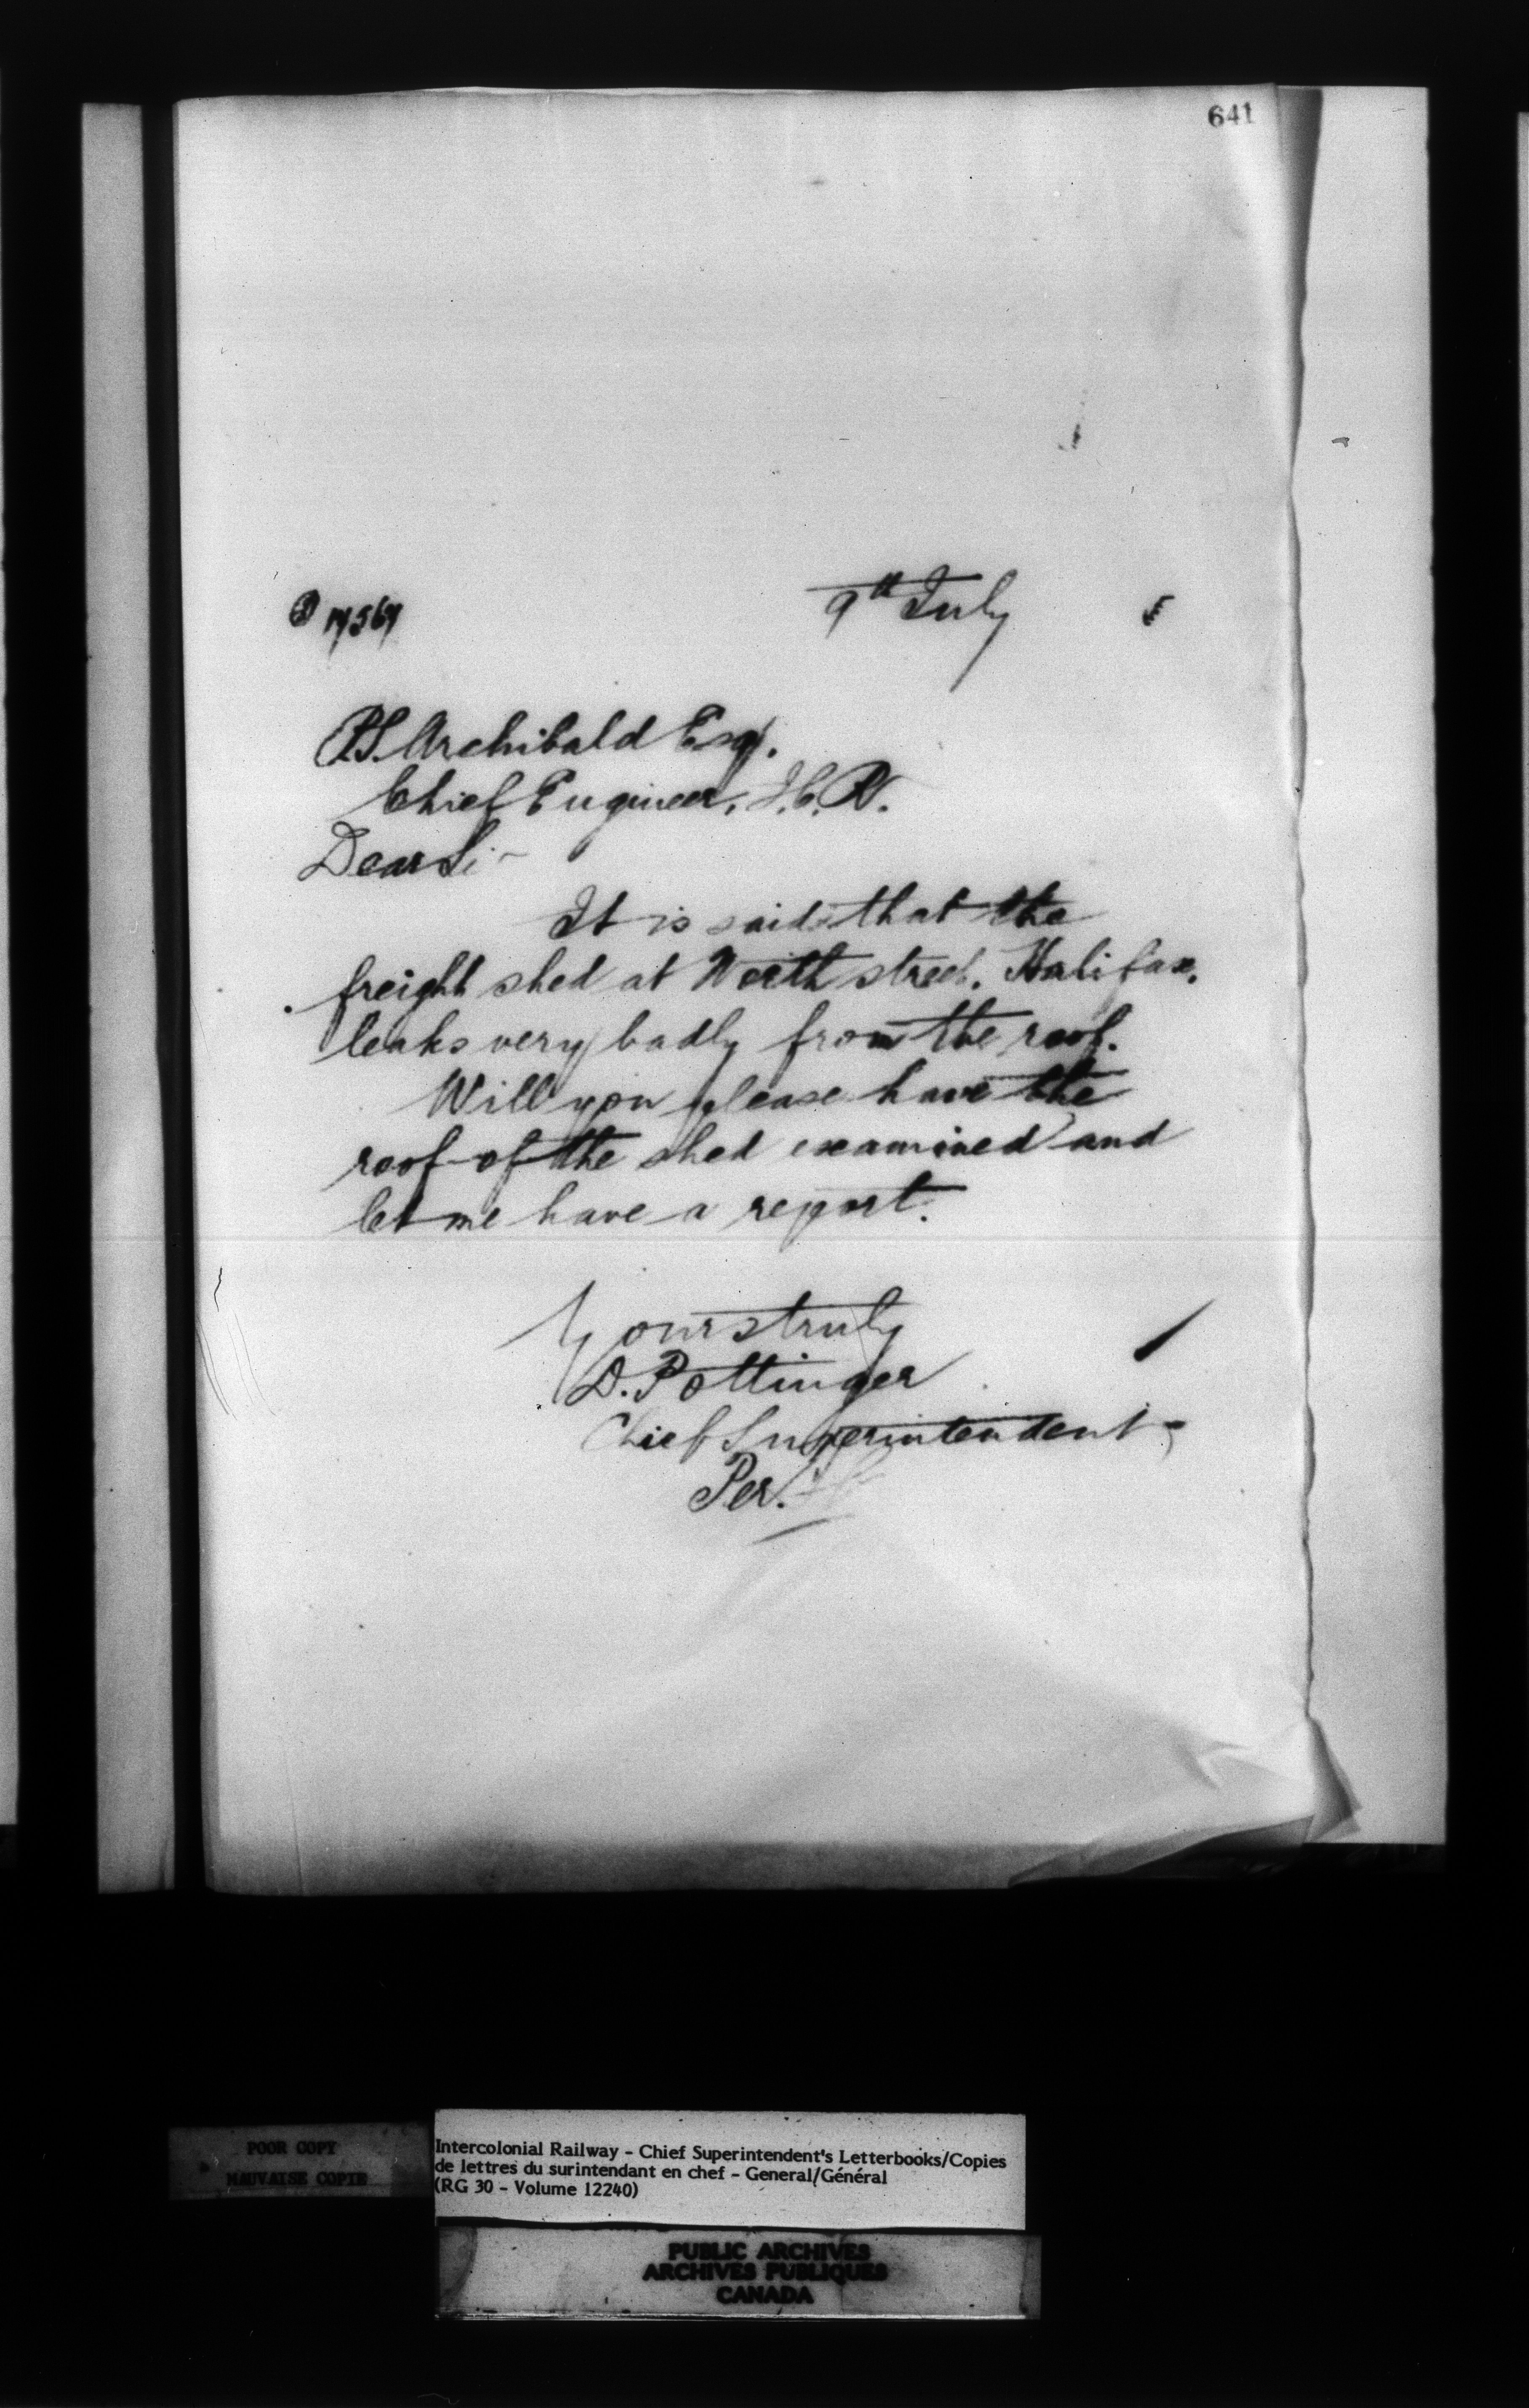 641
9th July 5
P.S. Archibald Esq.
Chief Engineer, I.C.R.
Dear Si
It is said that the
freight shed at North street, Halifax,
leaks very badly from the roof.
Will you please have the
roof of the shed examined and
let me have a report.
Yours truly
D. Pottinger
Chief Superintendent
Per.
POOR COPY
MAUVAISE COPIE
Intercolonial Railway - Chief Superintendent's Letterbooks/Copies
de lettres du surintendant en chef - General/Général
(RG 30 - Volume 12240)
PUBLIC ARCHIVES
ARCHIVES PUBLIQUES
CANADA